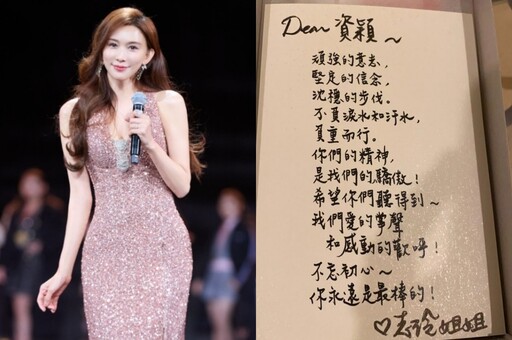 Dear 資穎～
頑強的意志,
堅定的信念,
沈穩的步伐。
不負淚水和汗水,
負重而行。
你們的精神,
是我們的驕傲!
希望你們聽得到～
我們愛的掌聲
和感動的歡呼!
不忘初心～
你永遠是最棒的!
♡志玲姐姐